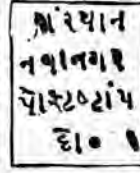 સંસ્થાન
નવાનગર
પોસ્ટસ્ટાંપ
દો૦ ૧